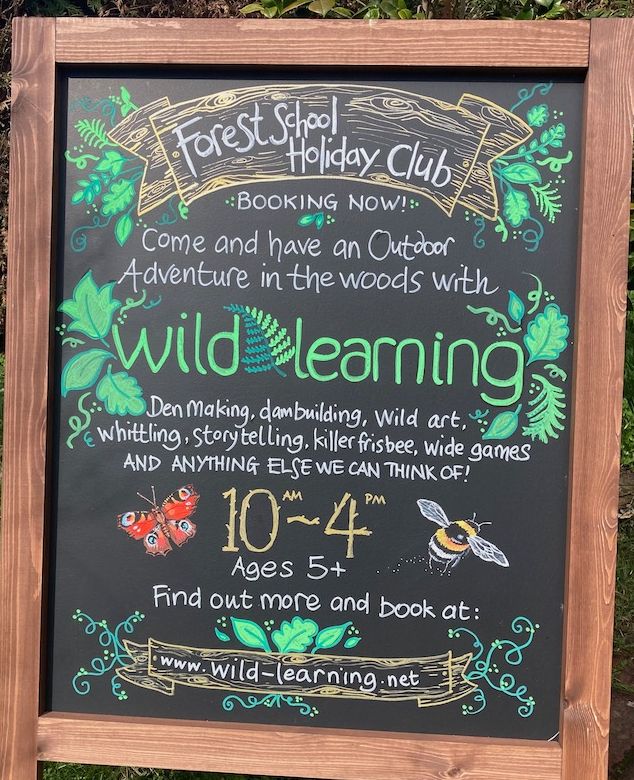 Forest School
Holiday Club
BOOKING NOW!
Come and have an Outdoor
Adventure in the woods with
wild learning
Den Making, dambuilding, Wild art,
whittling, storytelling, killer frisbee, wide games
AND ANYTHING ELSE WE CAN THINK OF!
10AM - 4PM
Ages 5+
Find out more and book at:
www.wild-learning.net